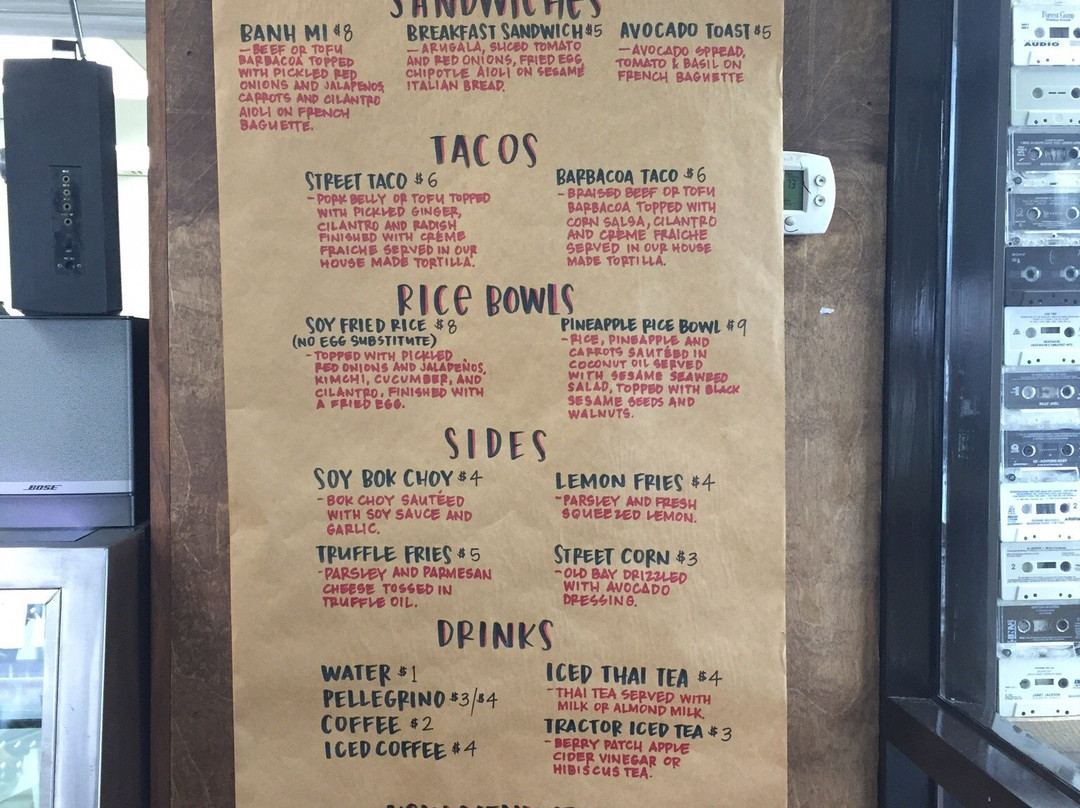 SANDWICHES
BANH MI $8
-BEEF OR TOFU
BARBACOA TOPPED
WITH PICKLED RED
ONIONS AND JALAPEÑOS,
CARROTS AND CILANTRO
AIOLI ON FRENCH
BAGUETTE.
BREAKFAST SANDWICH $5
-ARUGALA, SLICED TOMATO
AND RED ONIONS, FRIED EGG,
CHIPOTLE AIOLI ON SESAME
ITALIAN BREAD.
AVOCADO TOAST $5
-AVOCADO SPREAD,
TOMATO & BASIL ON
FRENCH BAGUETTE
TACOS
STREET TACO $6
-PORK BELLY OR TOFU TOPPED
WITH PICKLED GINGER,
CILANTRO AND RADISH
FINISHED WITH CRÈME
FRAICHE SERVED IN OUR
HOUSE MADE TORTILLA.
BARBACOA TACO $6
-BRAISED BEEF OR TOFU
BARBACOA TOPPED WITH
CORN SALSA, CILANTRO
AND CRÈME FRAICHE
SERVED IN OUR HOUSE
MADE TORTILLA.
RICE BOWLS
SOY FRIED RICE $8
(NO EGG SUBSTITUTE)
-TOPPED WITH PICKLED
RED ONIONS AND JALAPEÑOS,
KIMCHI, CUCUMBER, AND
CILANTRO, FINISHED WITH
A FRIED EGG.
PINEAPPLE RICE BOWL $9
-RICE, PINEAPPLE AND
CARROTS SAUTÉED IN
COCONUT OIL SERVED
WITH SESAME SEAWEED
SALAD, TOPPED WITH BLACK
SESAME SEEDS AND
WALNUTS.
SIDES
SOY BOK CHOY $4
-BOK CHOY SAUTÉED
WITH SOY SAUCE AND
GARLIC.
LEMON FRIES $4
-PARSLEY AND FRESH
SQUEEZED LEMON.
TRUFFLE FRIES $5
-PARSLEY AND PARMESAN
CHEESE TOSSED IN
TRUFFLE OIL.
STREET CORN $3
-OLD BAY DRIZZLED
WITH AVOCADO
DRESSING.
DRINKS
WATER $1
PELLEGRINO $3/$4
COFFEE $2
ICED COFFEE $4
ICED THAI TEA $4
-THAI TEA SERVED WITH
MILK OR ALMOND MILK.
TRACTOR ICED TEA $3
-BERRY PATCH APPLE
CIDER VINEGAR OR
HIBISCUS TEA.
BOSE
73
Forrest Gump
AUDIO
SONY
JANET JACKSON